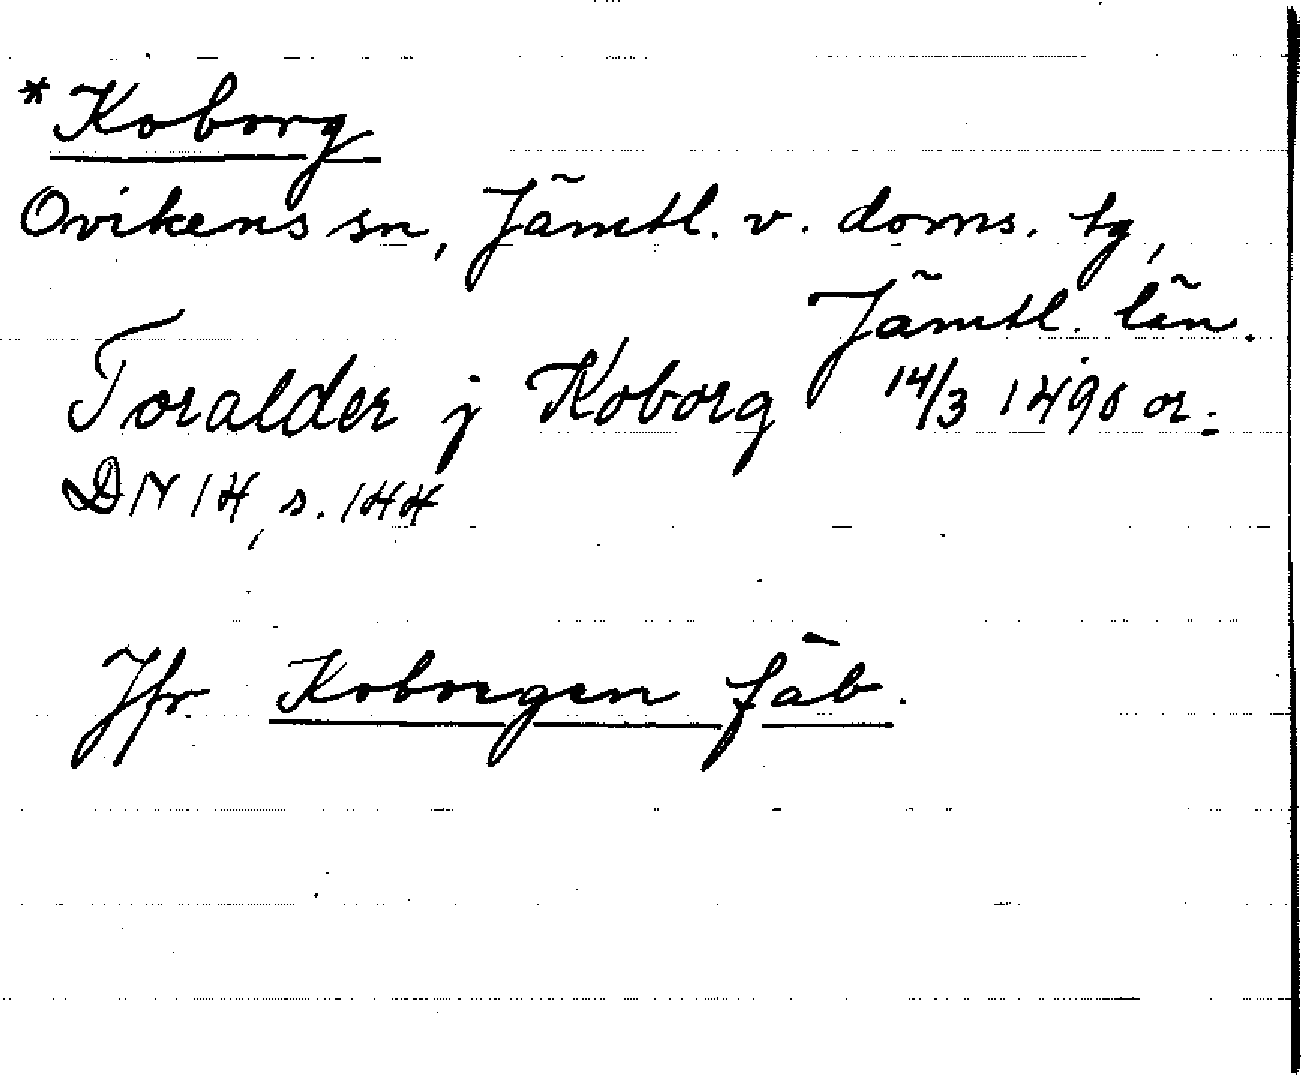 *Koborg
Ovikens sn, Jämtl. v. doms. tg,
Jämtl. län.
Toralder j Koborg 14/3 1490 or.
DN 14, s. 144
Jfr Koborgen fäb.